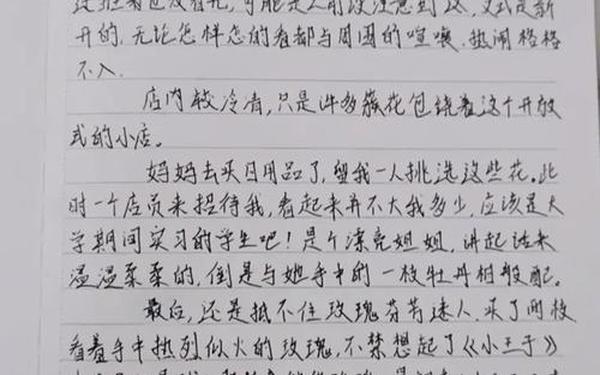 开的，无论怎样怎的看都与周围的喧嚷、热闹格格
不入.
店内较冷清，只是许多簇花包绕着这个开放
式的小店。
妈妈去买日用品了，留我一人挑选这些花。此
时一个店员来招待我，看起来并不大我多少，应该是大
学期间实习的学生吧！是个漂亮姐姐，讲起话来
温温柔柔的，倒是与她手中的一枝牡丹相般配。
最后，还是抵不住玫瑰芬芳迷人，买了两枝
看着手中热烈似火的玫瑰，不禁想起了《小王子》